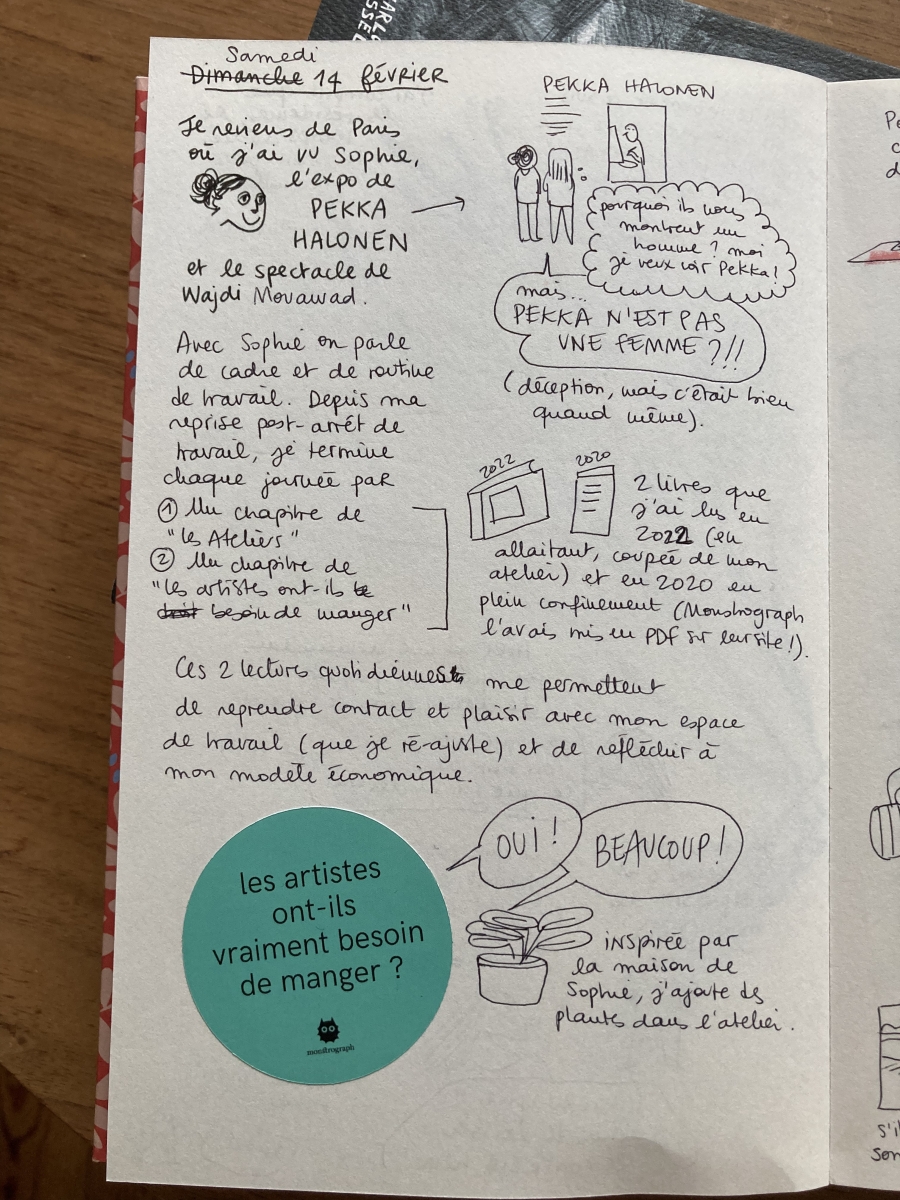 Samedi
Dimanche 14 février
Je reviens de Paris
où j'ai vu Sophie,
l'expo de
PEKKA
HALONEN
et le spectacle de
Wajdi Mouawad.
Avec Sophie on parle
de cadre et de routine
de travail. Depuis ma
reprise post-arrêt de
travail, je termine
chaque journée par
① Un chapitre de
"les Ateliers"
② Un chapitre de
"les artistes ont-ils le
droit besoin de manger"
PEKKA HALONEN
pourquoi ils nous
montrent un
homme ? moi
je veux voir Pekka !
mais...
PEKKA N'EST PAS
UNE FEMME ?!!
(déception, mais c'était bien
quand même).
2022
2020
2 livres que
j'ai lus en
2022 (en
allaitant, coupée de mon
atelier) et en 2020 en
plein confinement (Monstrograph
l'avais mis en PDF sur leur site !).
Ces 2 lectures quotidiennes
me permettent
de reprendre contact et plaisir avec mon espace
de travail (que je ré-ajuste) et de réflechir à
mon modèle économique.
les artistes
ont-ils
vraiment besoin
de manger ?
monstrograph
OUI !
BEAUCOUP !
inspirée par
la maison de
Sophie, j'ajoute des
plantes dans l'atelier.
Pe
c
d
s'i
son